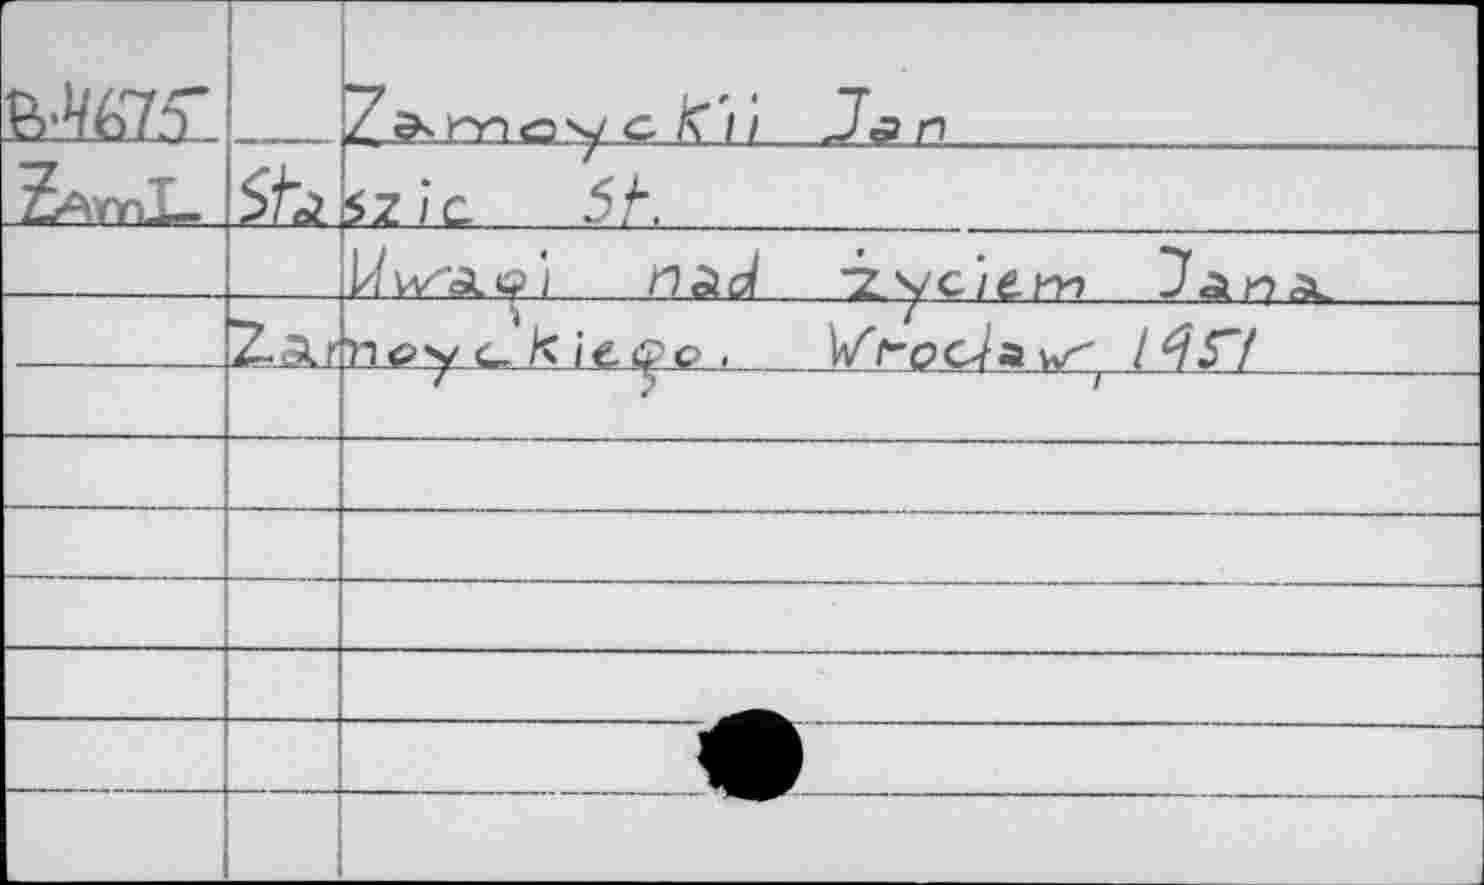 B-4675 Zamoyckii Jan
ZAmI- Staszic St.
Uwagi nad życiem Jana
Zamoyckiego. Wrocław, 1951